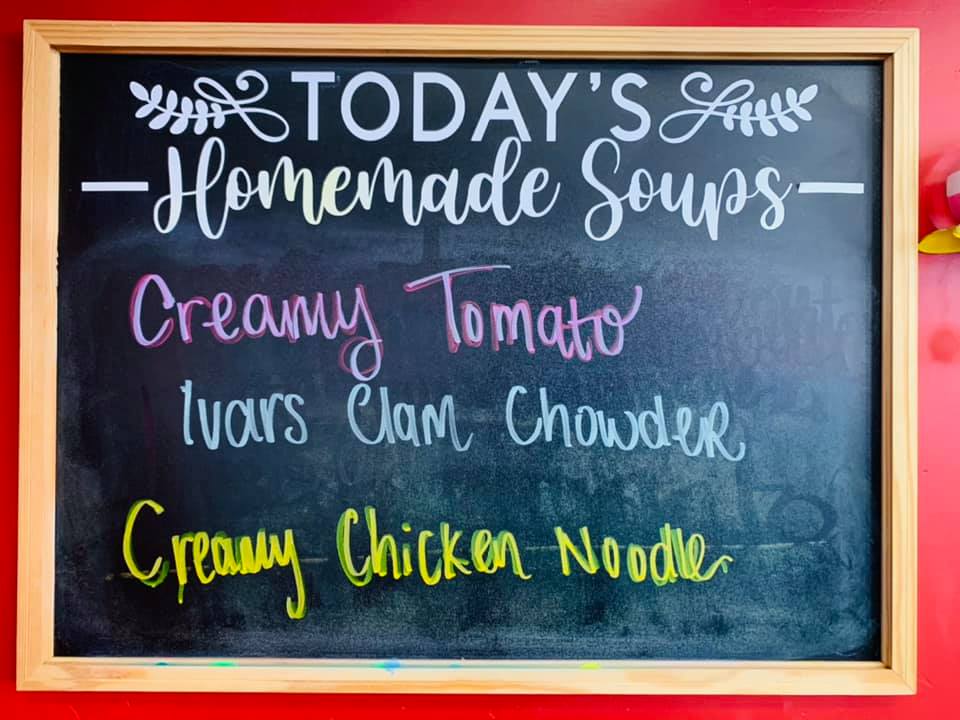 TODAY'S
Homemade Soups
Creamy Tomato
Ivars Clam Chowder
Creamy Chicken Noodle